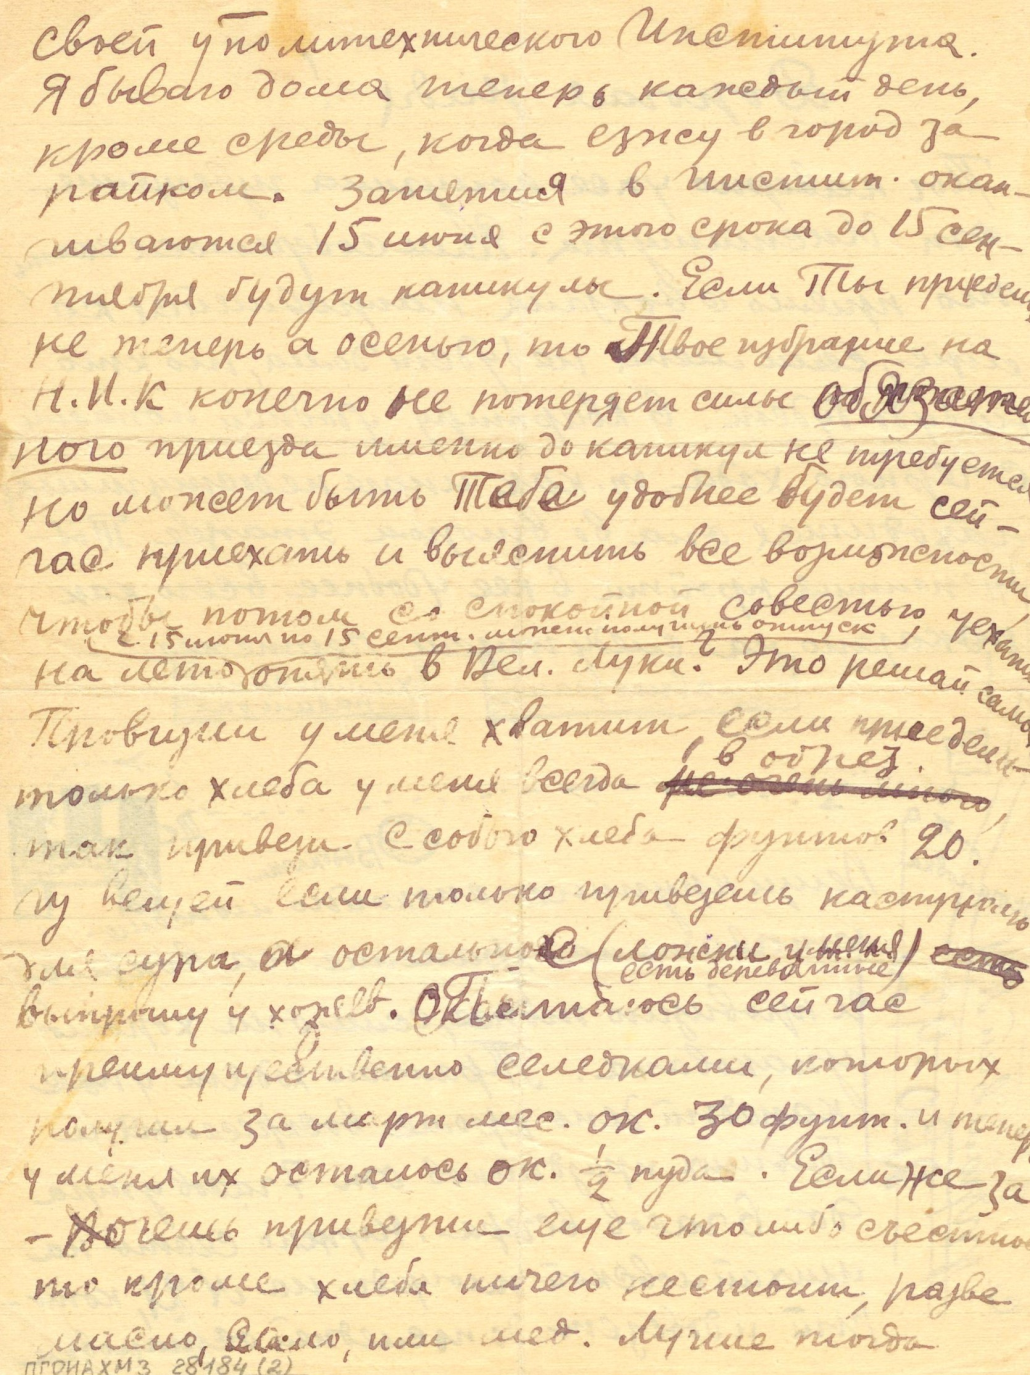 своей у политехнического Института.
Я бываю дома теперь каждый день,
кроме среды, когда езжу в город за
пайком. Занятия в Инстит. окан-
чиваются 15 июня с этого срока до 15 сен-
тября будут каникулы. Если Ты приедешь
не теперь а осенью, то Твое избрание на
Н.И.К конечно не потеряет силы обязатель
ного приезда именно до каникул не требуется
но может быть Тебе удобнее будет сей-
час приехать и выяснить все возможности,
чтобы потом со спокойной совестью, уехать
с 15 июня по 15 сент. может получить отпуск
на лето опять в Вел. Луки? Это решай сама,
Провизии у меня хватит если приедешь
в обрез.
только хлеба у меня всегда не очень много,
так привези с собою хлеба фунтов 20.
из вещей если только привезешь кастрюль
для супа, а остальное (ложки у меня) есть
есть деревянные
выпрошу у хозяев. Питаюсь сейчас
преимущественно селедками, которых
получил за март мес. ок. 30 фунт. и тепер
у меня их осталось ок. 1/2 пуда. Если же за
-хочешь привезти еще что либо съестно
то кроме хлеба ничего нестоит, разве
масло, сало, или мед. Лучше тогда
ПГОИАХМЗ 28184 (2)